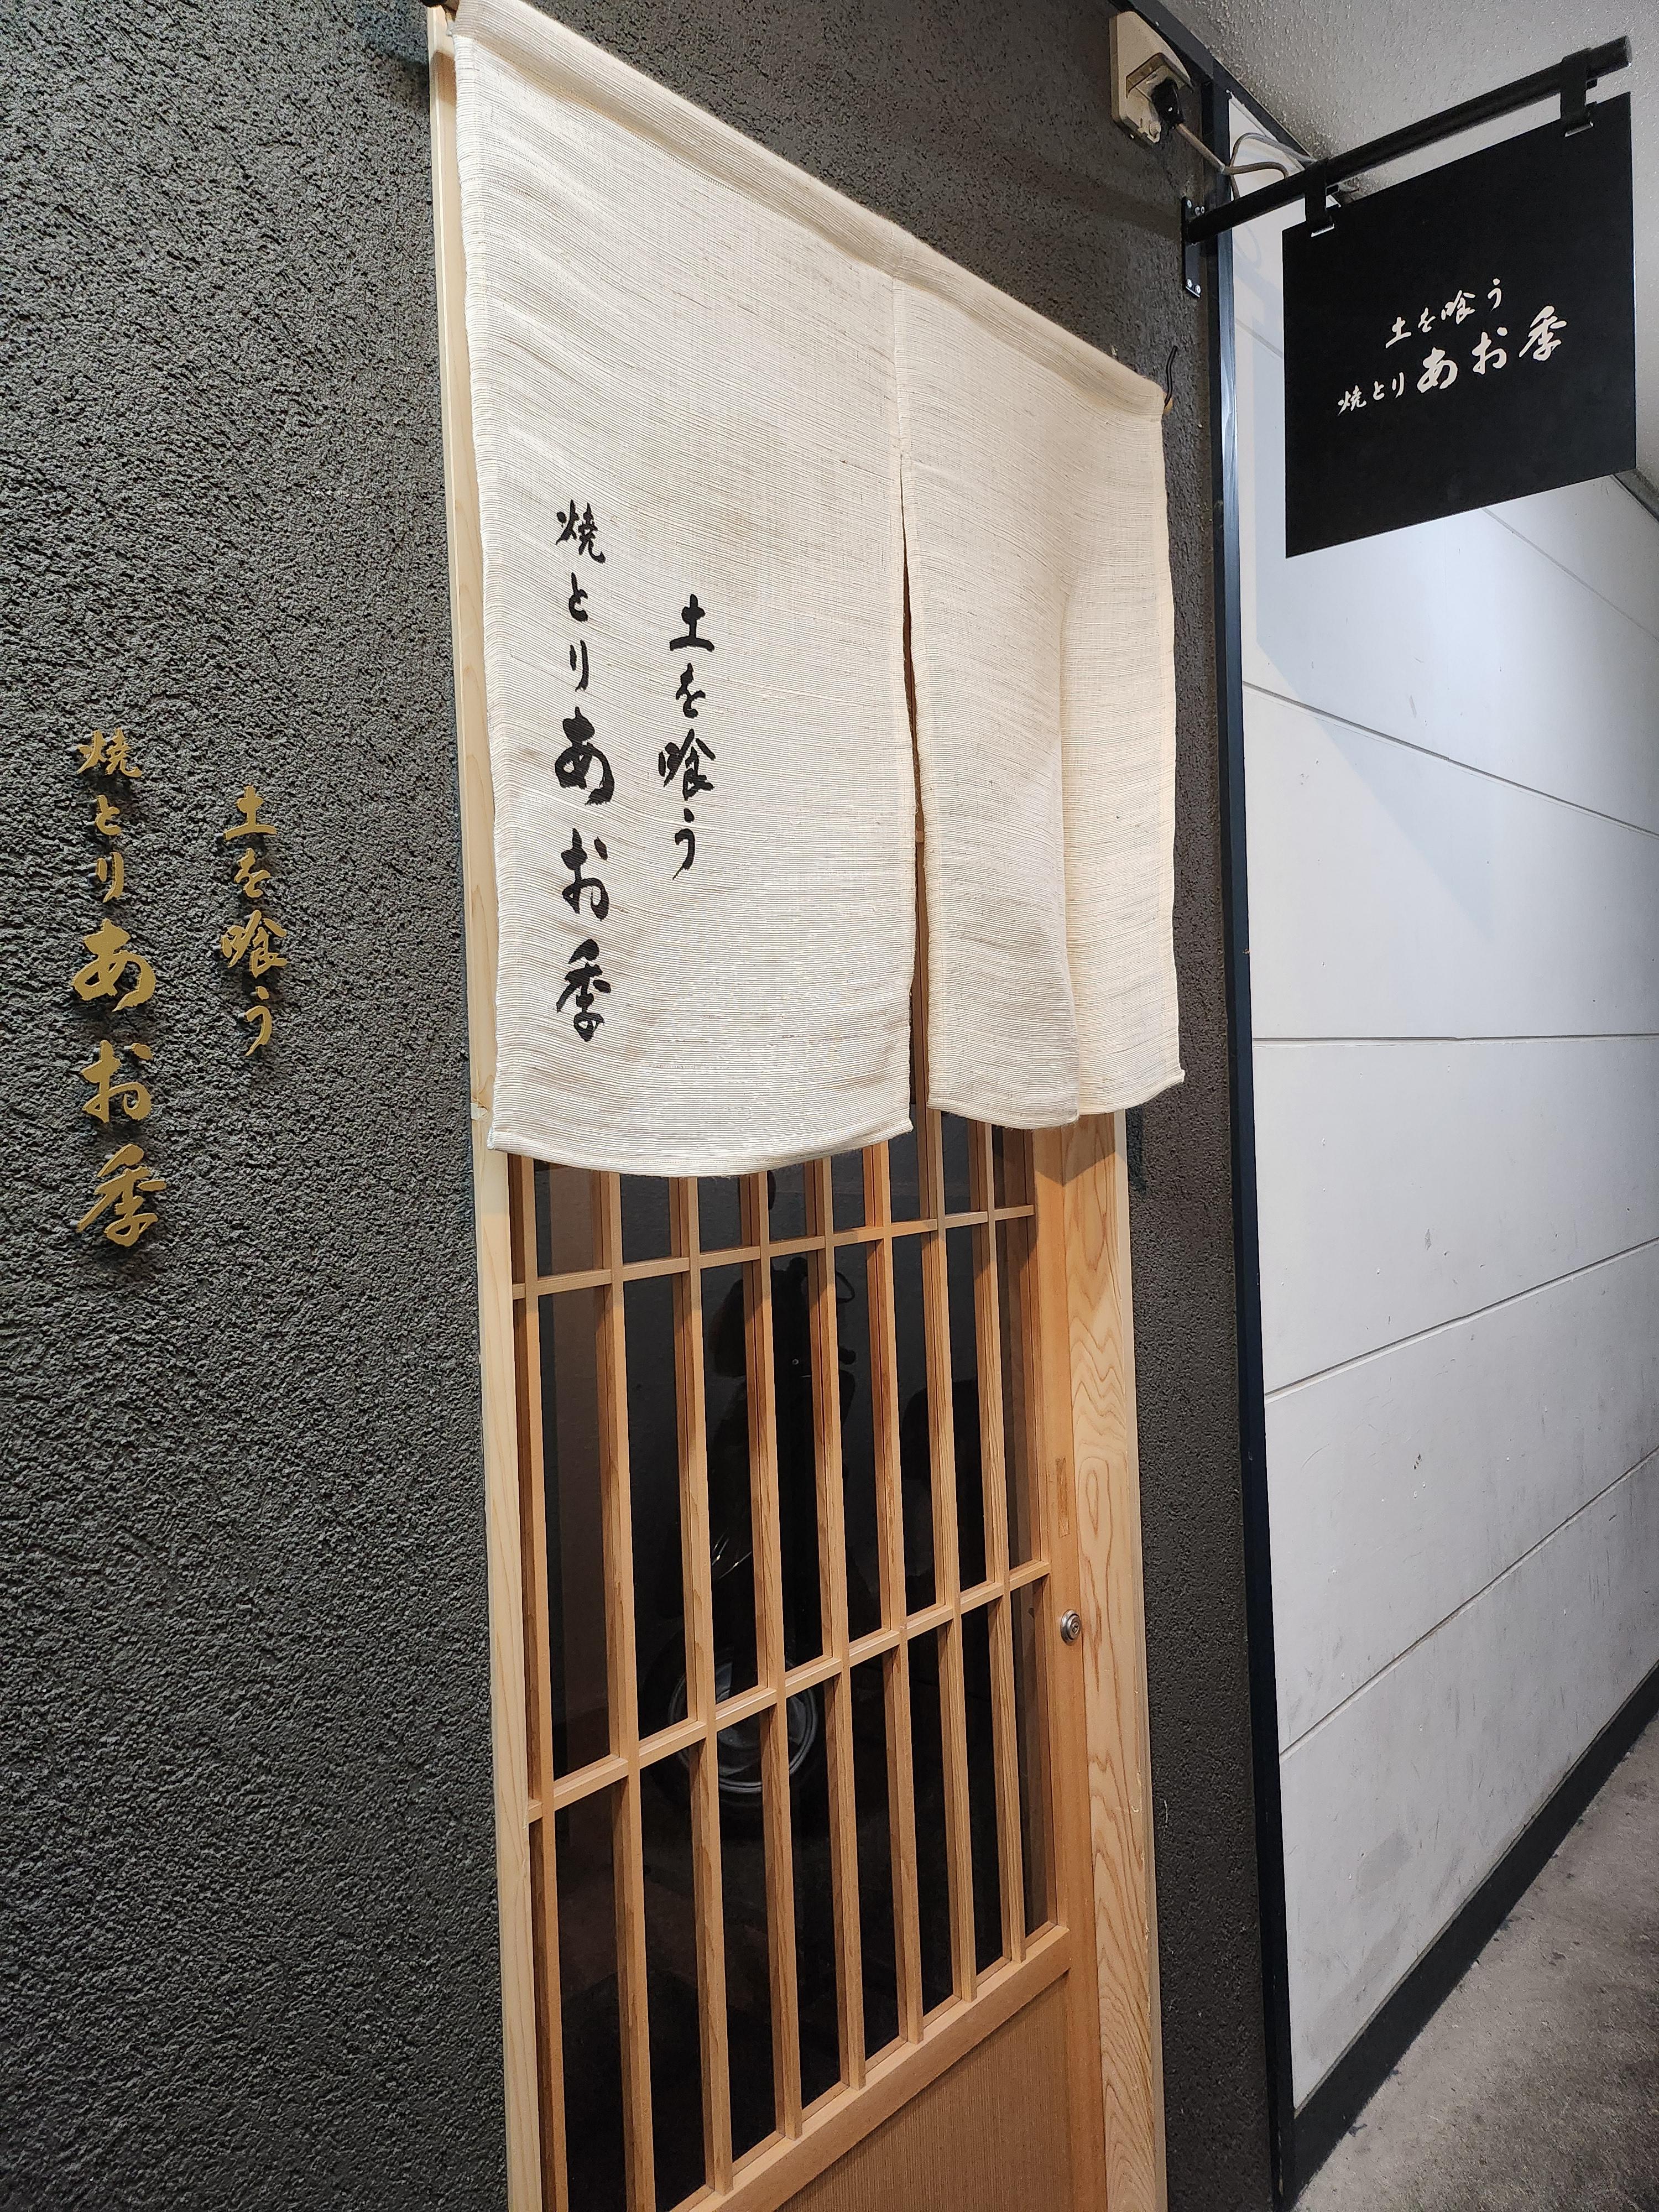 土を喰う
焼とりあお季
土を喰う
焼とりあお季
土を喰う
焼とりあお季